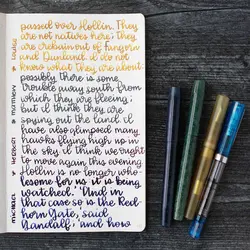 passed over Hollin. They
are not natives here; they
are crebain out of Fangorn
and Dunland. I do not
know what they are about:
possibly there is some
trouble away south from
which they are fleeing;
but I think they are
spying out the land. I
have also glimpsed many
hawks flying high up in
the sky. I think we ought
to move again this evening.
Hollin is no longer who-
lesome for us: it is being
watched.' 'And in
that case so is the Red-
horn Gate,' said
Gandalf; 'and how